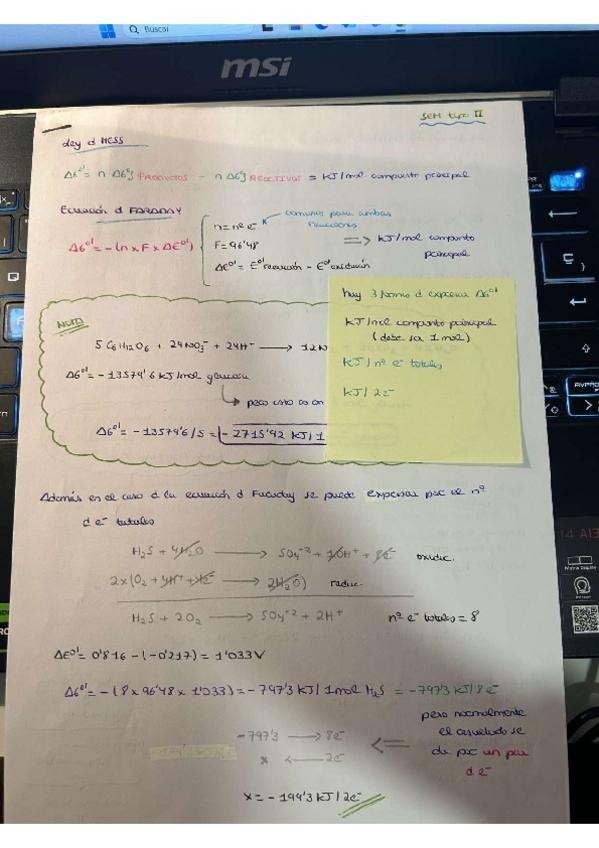 Buscar
msi
SEM tipo II
Ley d HESS
ΔG°' = n ΔG°'f PRODUCTOS - n ΔG°'f REACTIVOS = KJ/mol compuesto principal
Ecuación d FARADAY
comunes para ambas
n = nº e⁻
ΔG°' = -(n x F x ΔE°')
F = 96'48
=> KJ/mol compuesto
principal
ΔE°' = E°' reducción - E°' oxidación
hay 3 formas d expresar ΔG°'
NOTA
KJ/mol compuesto principal
(debe ser 1 mol)
5 C6H12O6 + 24NO3⁻ + 24H⁺ ⟶ 12N
KJ/nº e⁻ totales
ΔG°' = -13579'6 KJ/mol glucosa
KJ/2e⁻
pero esto es on
ΔG°' = -13579'6/5 = -2715'92 KJ/1
Además en el caso d la ecuación d Faraday se puede expresar por el nº
d e⁻ totales
H2S + 4H2O ⟶ SO4⁻² + 10H⁺ + 8e⁻ oxidic.
2x(O2 + 4H⁺ + 4e⁻ ⟶ 2H2O) reduc.
H2S + 2O2 ⟶ SO4⁻² + 2H⁺ nº e⁻ totales = 8
ΔE°' = 0'816 - (-0'217) = 1'033V
ΔG°' = -(8 x 96'48 x 1'033) = -797'3 KJ/1mol H2S = -797'3 KJ/8e⁻
pero normalmente
el resultado se
da por un par
d e⁻
<=
-797'3 ⟶ 8e⁻
x ⟵ 2e⁻
x = -199'3 KJ/2e⁻